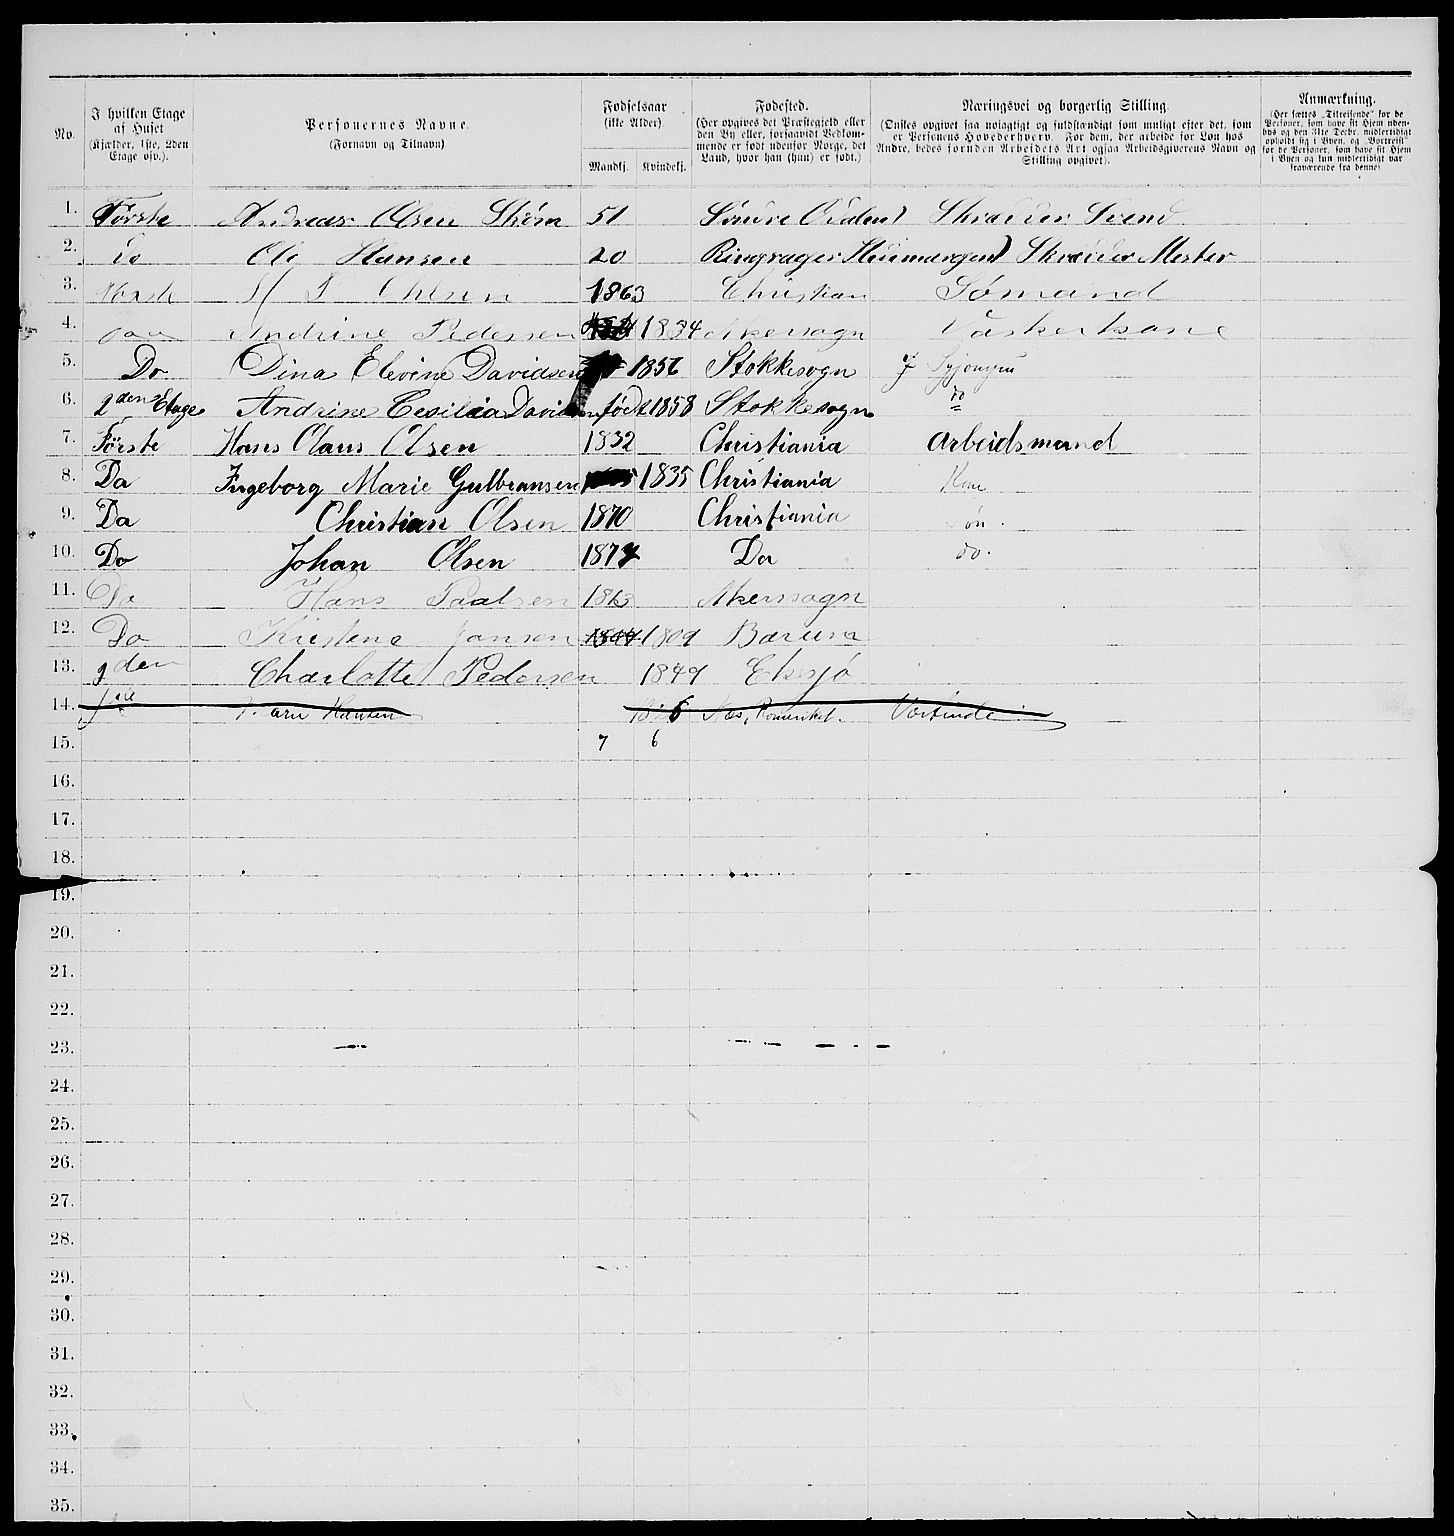 No.
I hvilken Etage af Huset (Kjælder, 1ste, 2den Etage osv.).
Personernes Navne. (Fornavn og Tilnavn)
Fødselsaar (ikke Alder) Mandkj. Kvindekj.
Fødested. (Her opgives det Præstegjeld eller den By eller, forsaavidt Vedkommende er født udenfor Norge, det Land, hvor han (hun) er født.)
Næringsvei og borgerlig Stilling. (Ønskes opgivet saa nøiagtigt og fuldstændigt som muligt efter det, som er Personens Hovederhverv. For dem, der arbeide for Løn hos Andre, bedes foruden Arbeidets Art ogsaa Arbeidsgiverens Navn og Stilling opgivet).
Anmærkning. (Her sættes „Tilreisende" for de Personer, som have sit Hjem udenbys og den 31te Decbr. midlertidigt opholdt sig i Byen, og „Bortreist" for de Personer, som have sit Hjem i Byen og kun midlertidigt var fraværende fra denne).
1. Første Andreas Olsen Strøm 51 Søndre Skrædder Svend
2. Do Ole Hansen 20 Skrædder Mester
3. Ohlsen 1863 Christian Sømand
4. Andrine Pedersen 1834 Akerssogn Vaskerkone
5. Do Dina Elevine Davidsen 1856 Stokkesogn Syjomfru
6. 2den Etage Andrine Cesilia Davidsen født 1858 Stokkesogn do
7. Første Hans Olaus Olsen 1832 Christiania Arbeidsmand
8. Do Ingeborg Marie Gulbransen 1835 Christiania Kone
9. Do Christian Olsen 1870 Christiania Søn.
10. Do Johan Olsen 1874 Do do.
11. Do Hans Paalsen 1863 Akerssogn
12. Do Kirstene Jansen 1809 Bærum
13. 2den Charlotte Pedersen 1849 Eksjø
14. Karn Hansen Næs, Romeriket.
15. 7 6
16.
17.
18.
19.
20.
21.
22.
23.
24.
25.
26.
27.
28.
29.
30.
31.
32.
33.
34.
35.